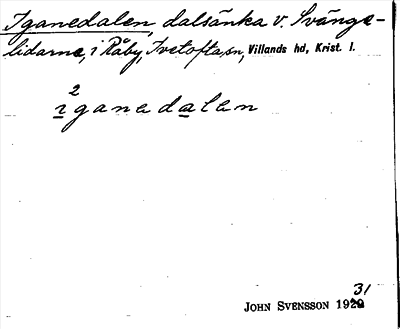 Iganedalen, dalsänka v. Svänge-
lidarna, i Råby, Ivetofta sn, Villands hd, Krist. l.
2
iganedalen
31
JOHN SVENSSON 1929